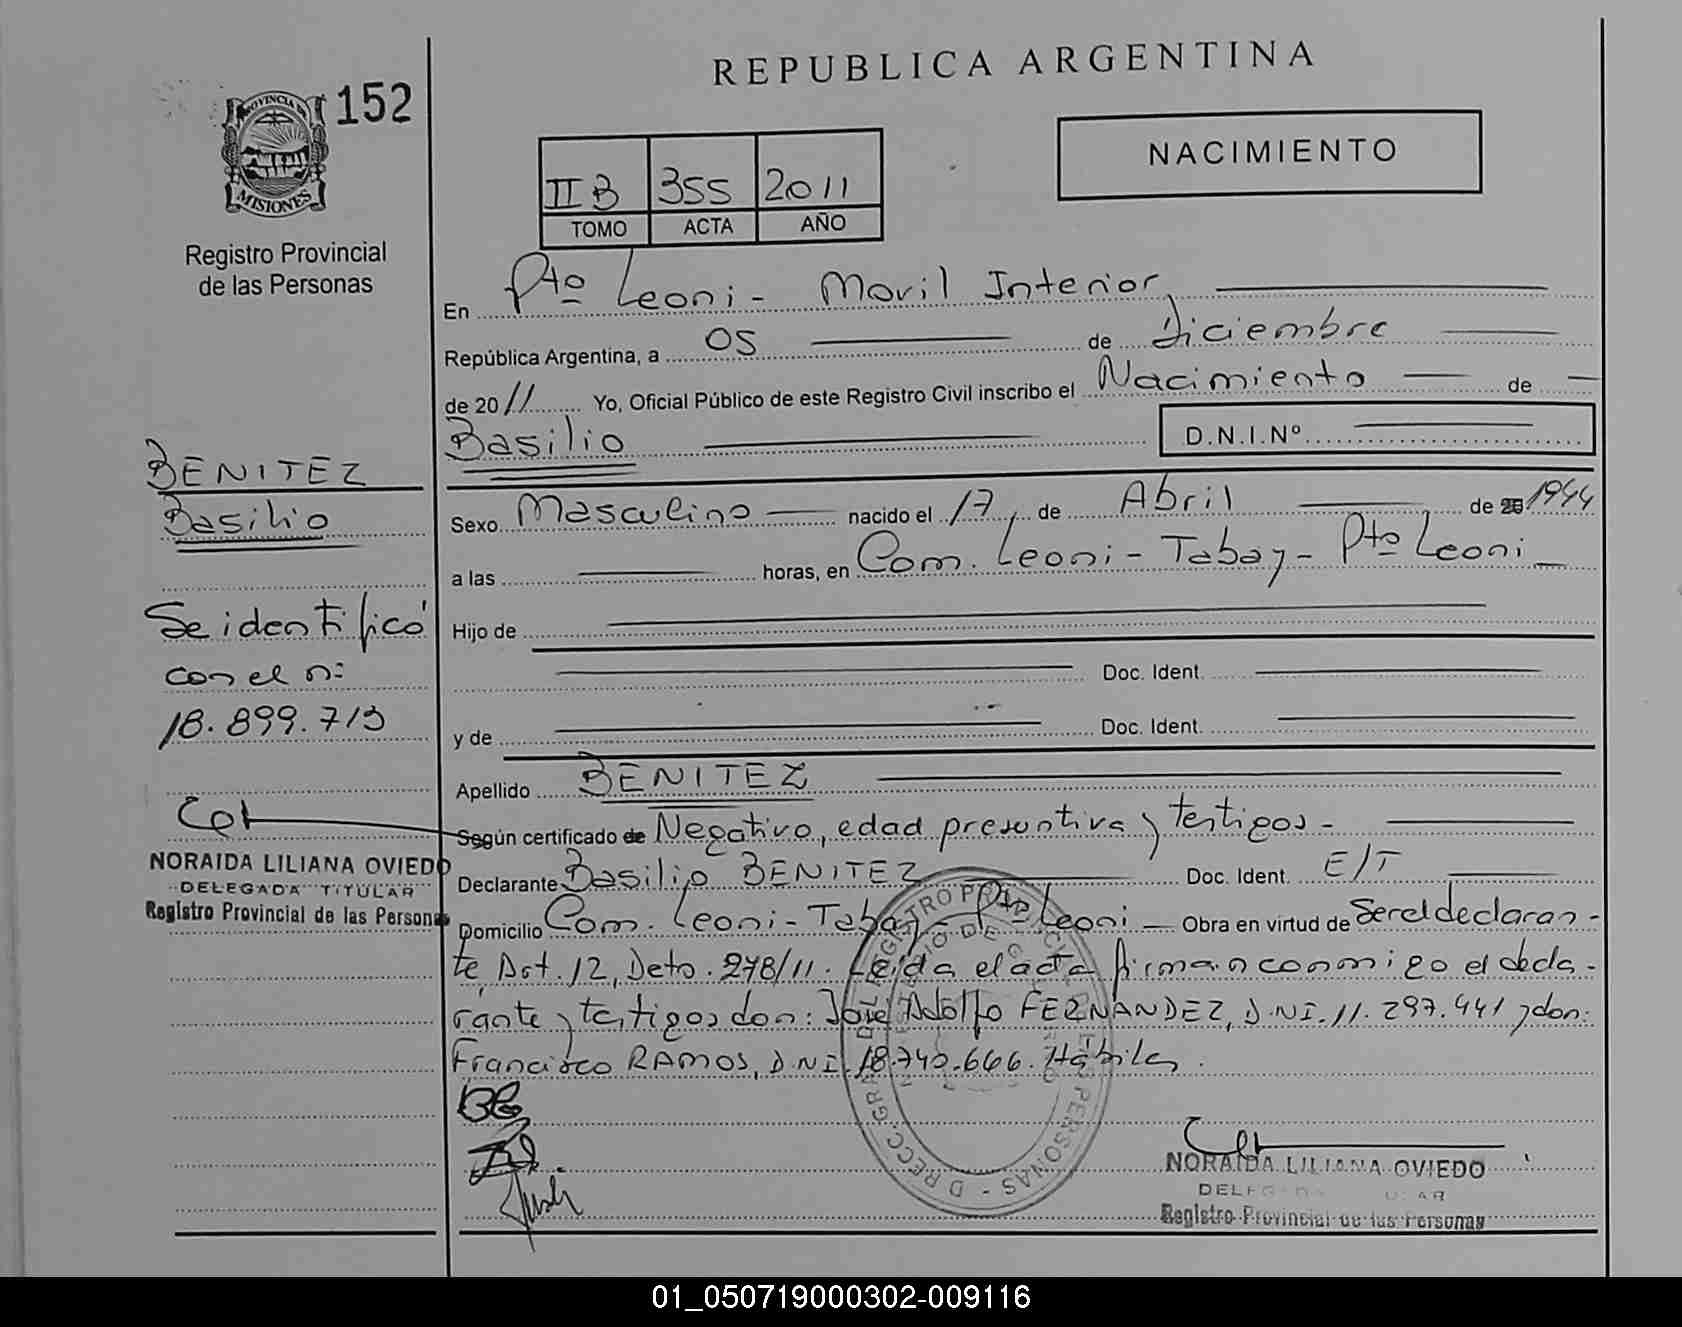 REPUBLICA ARGENTINA
152
PROVINCIA DE
MISIONES
Registro Provincial
de las Personas
NACIMIENTO
II B 355 2011
TOMO ACTA AÑO
En Pto Leoni - Movil Interior,
República Argentina, a 05 de Diciembre
de 2011 Yo, Oficial Público de este Registro Civil inscribo el Nacimiento de
Basilio D.N.I.Nº
BENITEZ
Basilio
Sexo Masculino nacido el 17 de Abril de 20 1944
a las horas, en Com. Leoni - Tabay - Pto Leoni
Se identificó
con el n:
18.899.713
Hijo de
Doc. Ident.
y de Doc. Ident.
Apellido BENITEZ
Según certificado de Negativo, edad presuntiva y testigos -
NORAIDA LILIANA OVIEDO
DELEGADA TITULAR
Registro Provincial de las Personas
Declarante Basilio BENITEZ Doc. Ident. E/T
Domicilio Com. Leoni - Tabay - Pto Leoni - Obra en virtud de Ser el declaran-
te Art. 12, Deto. 278/11. Leída el acta firman conmigo el decla-
rante y testigos don: José Adolfo FERNANDEZ, D.NI. 11.297.441 y don:
Francisco RAMOS, D.NI. 18.740.666. Hábiles.
BB
NORAIDA LILIANA OVIEDO
Registro Provincial de las Personas
01_050719000302-009116